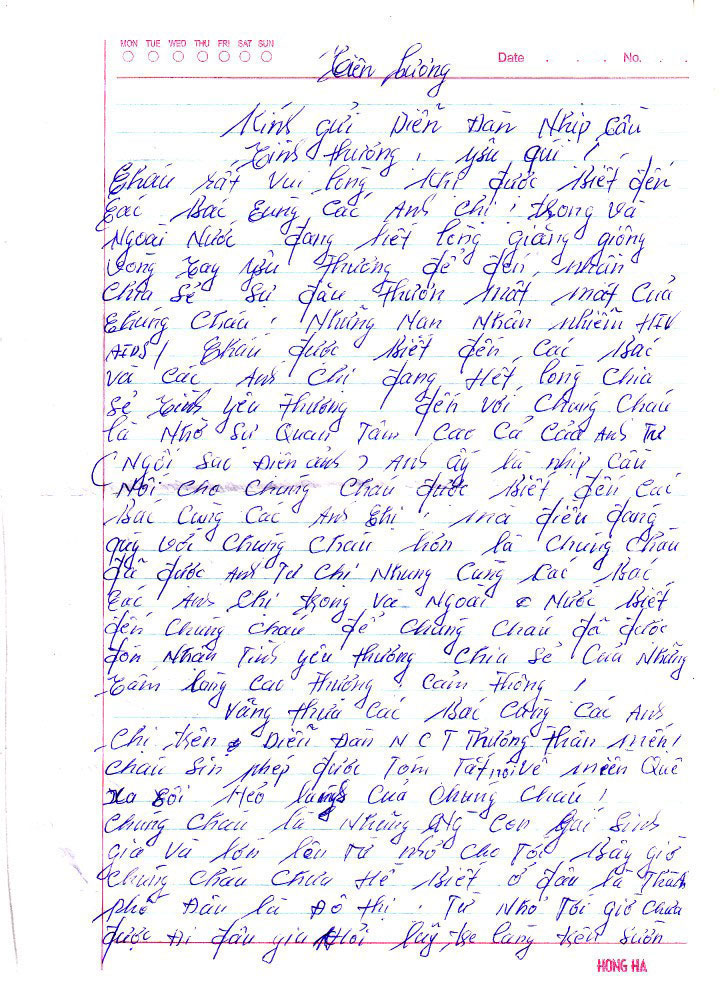 MON TUE WED THU FRI SAT SUN
Date . . . No. . .
Hiên Lương
Kính gửi Diễn Đàn Nhịp Cầu
Tình thương, yêu quí!
Cháu rất vui lòng khi được biết đến
các Bác cùng các Anh Chị! trong và
Ngoài Nước đang hết lòng giăng giông
vòng tay yêu thương để đến, nhân
chia sẻ sự đau thươn mất mát của
chúng cháu! Những Nạn Nhân nhiễm HIV
AIDS! Cháu được Biết đến các Bác
và các Anh Chị đang Hết lòng chia
sẻ tình yêu thương đến với chúng cháu
là Nhờ sự Quan Tâm Cao Cả Của Anh Tư
(Ngôi sao Điện ảnh) Anh ấy là nhịp cầu
Nối cho chúng cháu được Biết đến các
Bác Cùng các Anh Chị! mà điều đáng
quý với chúng cháu hơn là chúng cháu
đã được Anh Tư Chị Nhung Cùng các Bác
các Anh Chị trong và Ngoài Nước Biết
đến chúng cháu để chúng cháu đã được
đón Nhân Tình yêu thương chia sẻ của Những
tấm lòng cao thượng! cảm thông!
Vâng thưa các Bác cùng các Anh
Chị trên Diễn Đàn N C T Thương thân mến!
cháu Sin phép được Tóm Tắt nói về miền Quê
xa sôi Hẻo lánh của chúng cháu!
chúng cháu là Những Ng Con gái Sinh
gia và lớn lên từ nhỏ cho tới Bây giờ
chúng cháu chưa Hề Biết ở đâu là Thành
phố Đâu là Đô thị. Từ Nhỏ Tới giờ chưa
được Đi đâu gia khỏi luỹ tre làng trên sườn
HONG HA